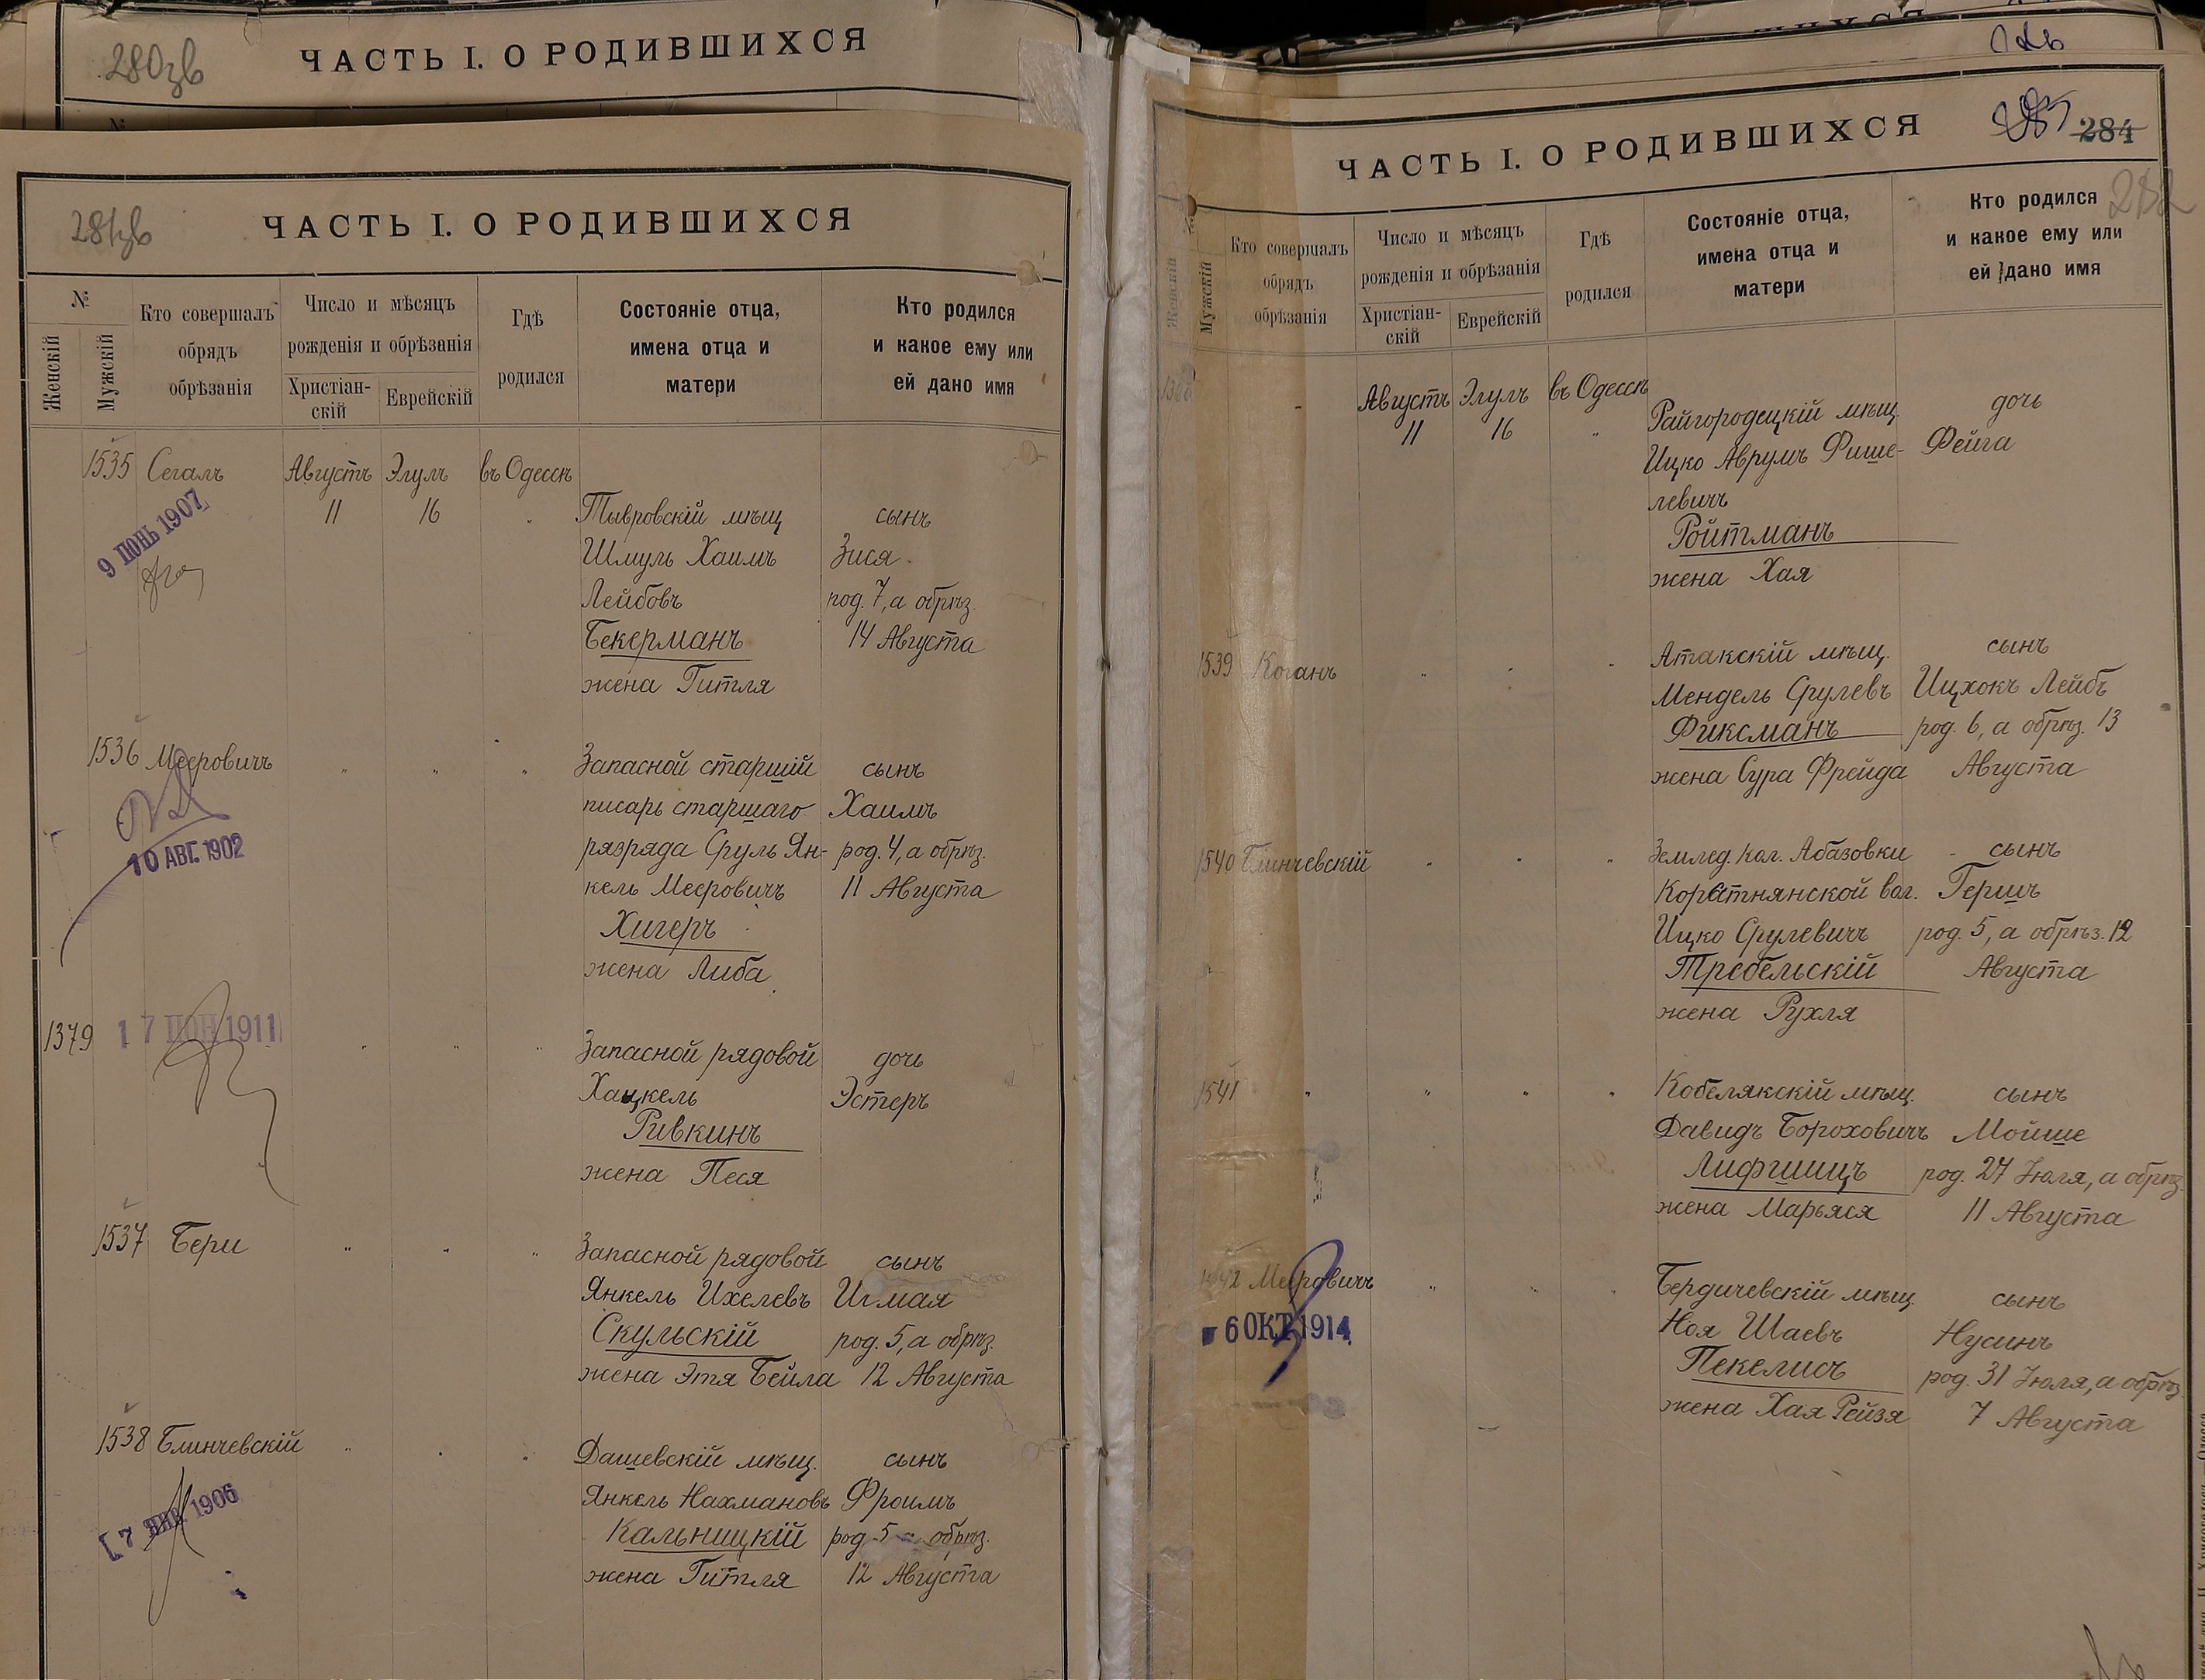 280зв
ЧАСТЬ I. О РОДИВШИХСЯ
281зв
ЧАСТЬ I. О РОДИВШИХСЯ
№
Женскій
Мужскій
Кто совершалъ
обрядъ
обрѣзанія
Число и мѣсяцъ
рожденія и обрѣзанія
Христіан-
скій
Еврейскій
Гдѣ
родился
Состояніе отца,
имена отца и
матери
Кто родился
и какое ему или
ей дано имя
1535 Сегалъ Августъ Элулъ въ Одессѣ
11 16 "
Тывровскій мѣщ сынъ
9 ІЮНЬ 1907
Шмуль Хаимъ Зися
Лейбовъ род. 7, а обрѣз.
Бекерманъ 14 Августа
жена Гитля
1536 Мееровичъ " " " Запасной старшій сынъ
писарь старшаго Хаимъ
10 АВГ. 1902
разряда Сруль Ян- род. 4, а обрѣз.
кель Мееровичъ 11 Августа
Хигеръ
жена Либа
1379 17 ІЮН 1911 " " " Запасной рядовой дочь
Хацкель Эстеръ
Ривкинъ
жена Песя
1537 Бери " " " Запасной рядовой сынъ
Янкель Ихелевъ Игмая
Скульскій род. 5, а обрѣз.
жена Этя Бейла 12 Августа
1538 Блинчевскій " " " Дашевскій мѣщ. сынъ
Янкель Нахмановъ Фроимъ
1906
Кальницкій род. 5 а обрѣз.
жена Гитля 12 Августа
ЧАСТЬ I. О РОДИВШИХСЯ
285 284
282
Женскій
Мужскій
Кто совершалъ
обрядъ
обрѣзанія
Число и мѣсяцъ
рожденія и обрѣзанія
Христіан-
скій
Еврейскій
Гдѣ
родился
Состояніе отца,
имена отца и
матери
Кто родился
и какое ему или
ей дано имя
Августъ Элулъ въ Одессѣ Райгородецкій мѣщ. дочь
11 16 " Ицко Аврумъ Фише- Фейга
левичъ
Ройтманъ
жена Хая
1539 Коганъ " " " Атакскій мѣщ. сынъ
Мендель Срулевъ Ицхокъ Лейбъ
Фиксманъ род. 6, а обрѣз. 13
жена Сура Фрейда Августа
1540 Блинчевскій " " " Землед. кол. Абазовки сынъ
Коротнянской вол. Гершъ
Ицко Срулевичъ род. 5, а обрѣз. 12
Требельскій Августа
жена Рухля
1541 " " " " Кобелякскій мѣщ. сынъ
Давидъ Бороховичъ Мойше
Лифшицъ род. 27 Іюля, а обрѣз.
жена Марьяся 11 Августа
1542 Мееровичъ " " " Бердичевскій мѣщ. сынъ
6 ОКТ 1914
Ноя Шаевъ Нусинъ
Пекелисъ род. 31 Іюля, а обрѣз.
жена Хая Рейзя 7 Августа